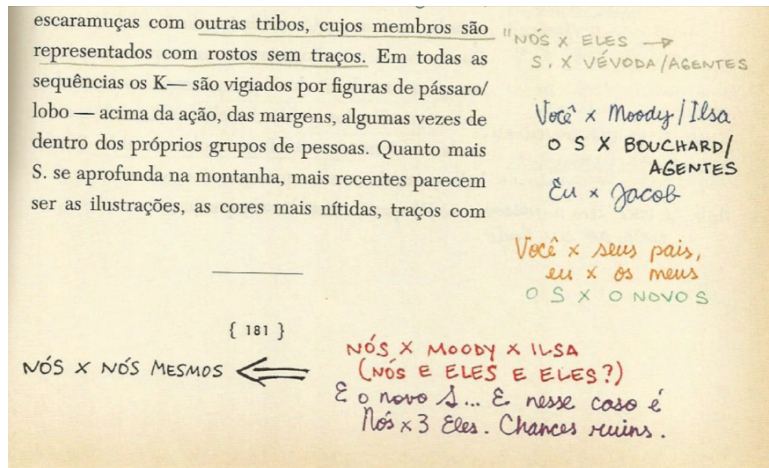 escaramuças com outras tribos, cujos membros são
representados com rostos sem traços. Em todas as
sequências os K— são vigiados por figuras de pássaro/
lobo — acima da ação, das margens, algumas vezes de
dentro dos próprios grupos de pessoas. Quanto mais
S. se aprofunda na montanha, mais recentes parecem
ser as ilustrações, as cores mais nítidas, traços com
"NÓS X ELES →
S. X VÉVODA/AGENTES
Você x Moody/Ilsa
O S X BOUCHARD/
AGENTES
Eu x Jacob
Você x seus pais,
eu x os meus
O S X O NOVO S
{ 181 }
NÓS X MOODY X ILSA
(NÓS E ELES E ELES?)
E o novo S... E nesse caso é
Nós x 3 Eles. Chances ruins.
NÓS X NÓS MESMOS ⇐